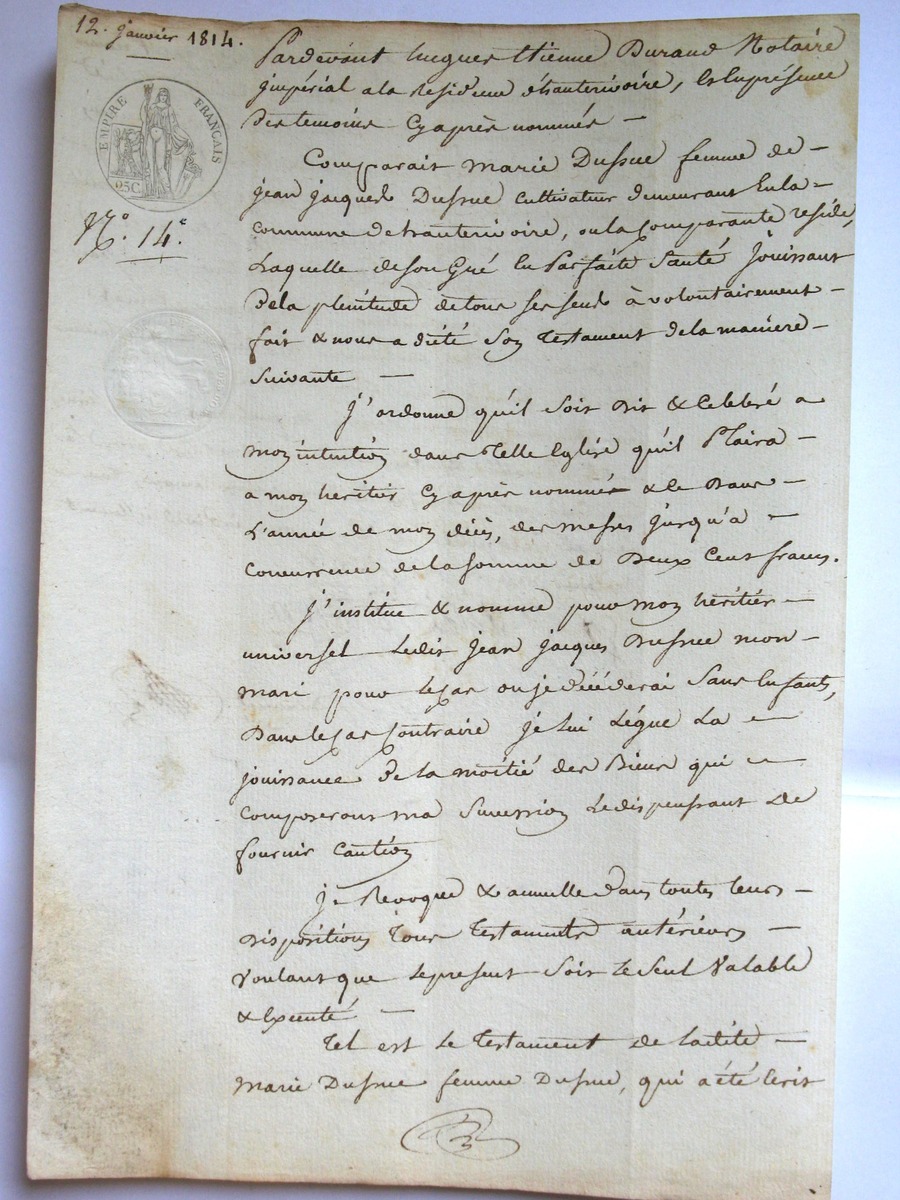 12. janvier 1814.
EMPIRE FRANÇAIS
25C.
N.° 14.e
Pardevant hugues Etienne Durand Notaire
jmpérial a la Residence d'hauterivoire, & En présence
des temoins Cyaprès nommés —
Comparait marie Dussue femme de —
jean jacques Dussue cultivateur demeurant En la —
commune de hauterivoire, ou la Comparante reside,
Laquelle de son Gré En Parfaite Santé Jouissant
De la plenitude de tous ses sens à volontairement —
fait & nous a dicté Son Testament de la maniere —
Suivante —
J'ordonne qu'il Soit Dit & Celebré a
mon intention dans Telle Eglise qu'il Plaira —
a mon heritier Cyaprès nommé & ce Dans —
L'année de mon décès, des messes jusqu'a —
Concurrence de la Somme de Deux Cent francs.
J'institue & nomme pour mon héritier —
universel Ledit jean jacques Dussue mon —
mari pour le Cas ou je décéderai Sans Enfants,
Dans le Cas Contraire Je Lui Légue La —
jouissance De la moitié des Biens qui —
Composeront ma Succession Le dispensant De
fournir Caution
je Revoque & annulle dans toutes leurs —
Dispositions Tous Testaments antérieurs —
Voulant que le present Soit Le Seul Valable
& Executé —
Tel est Le Testament de Ladite —
Marie Dussue femme Dussue, qui a été Ecrit